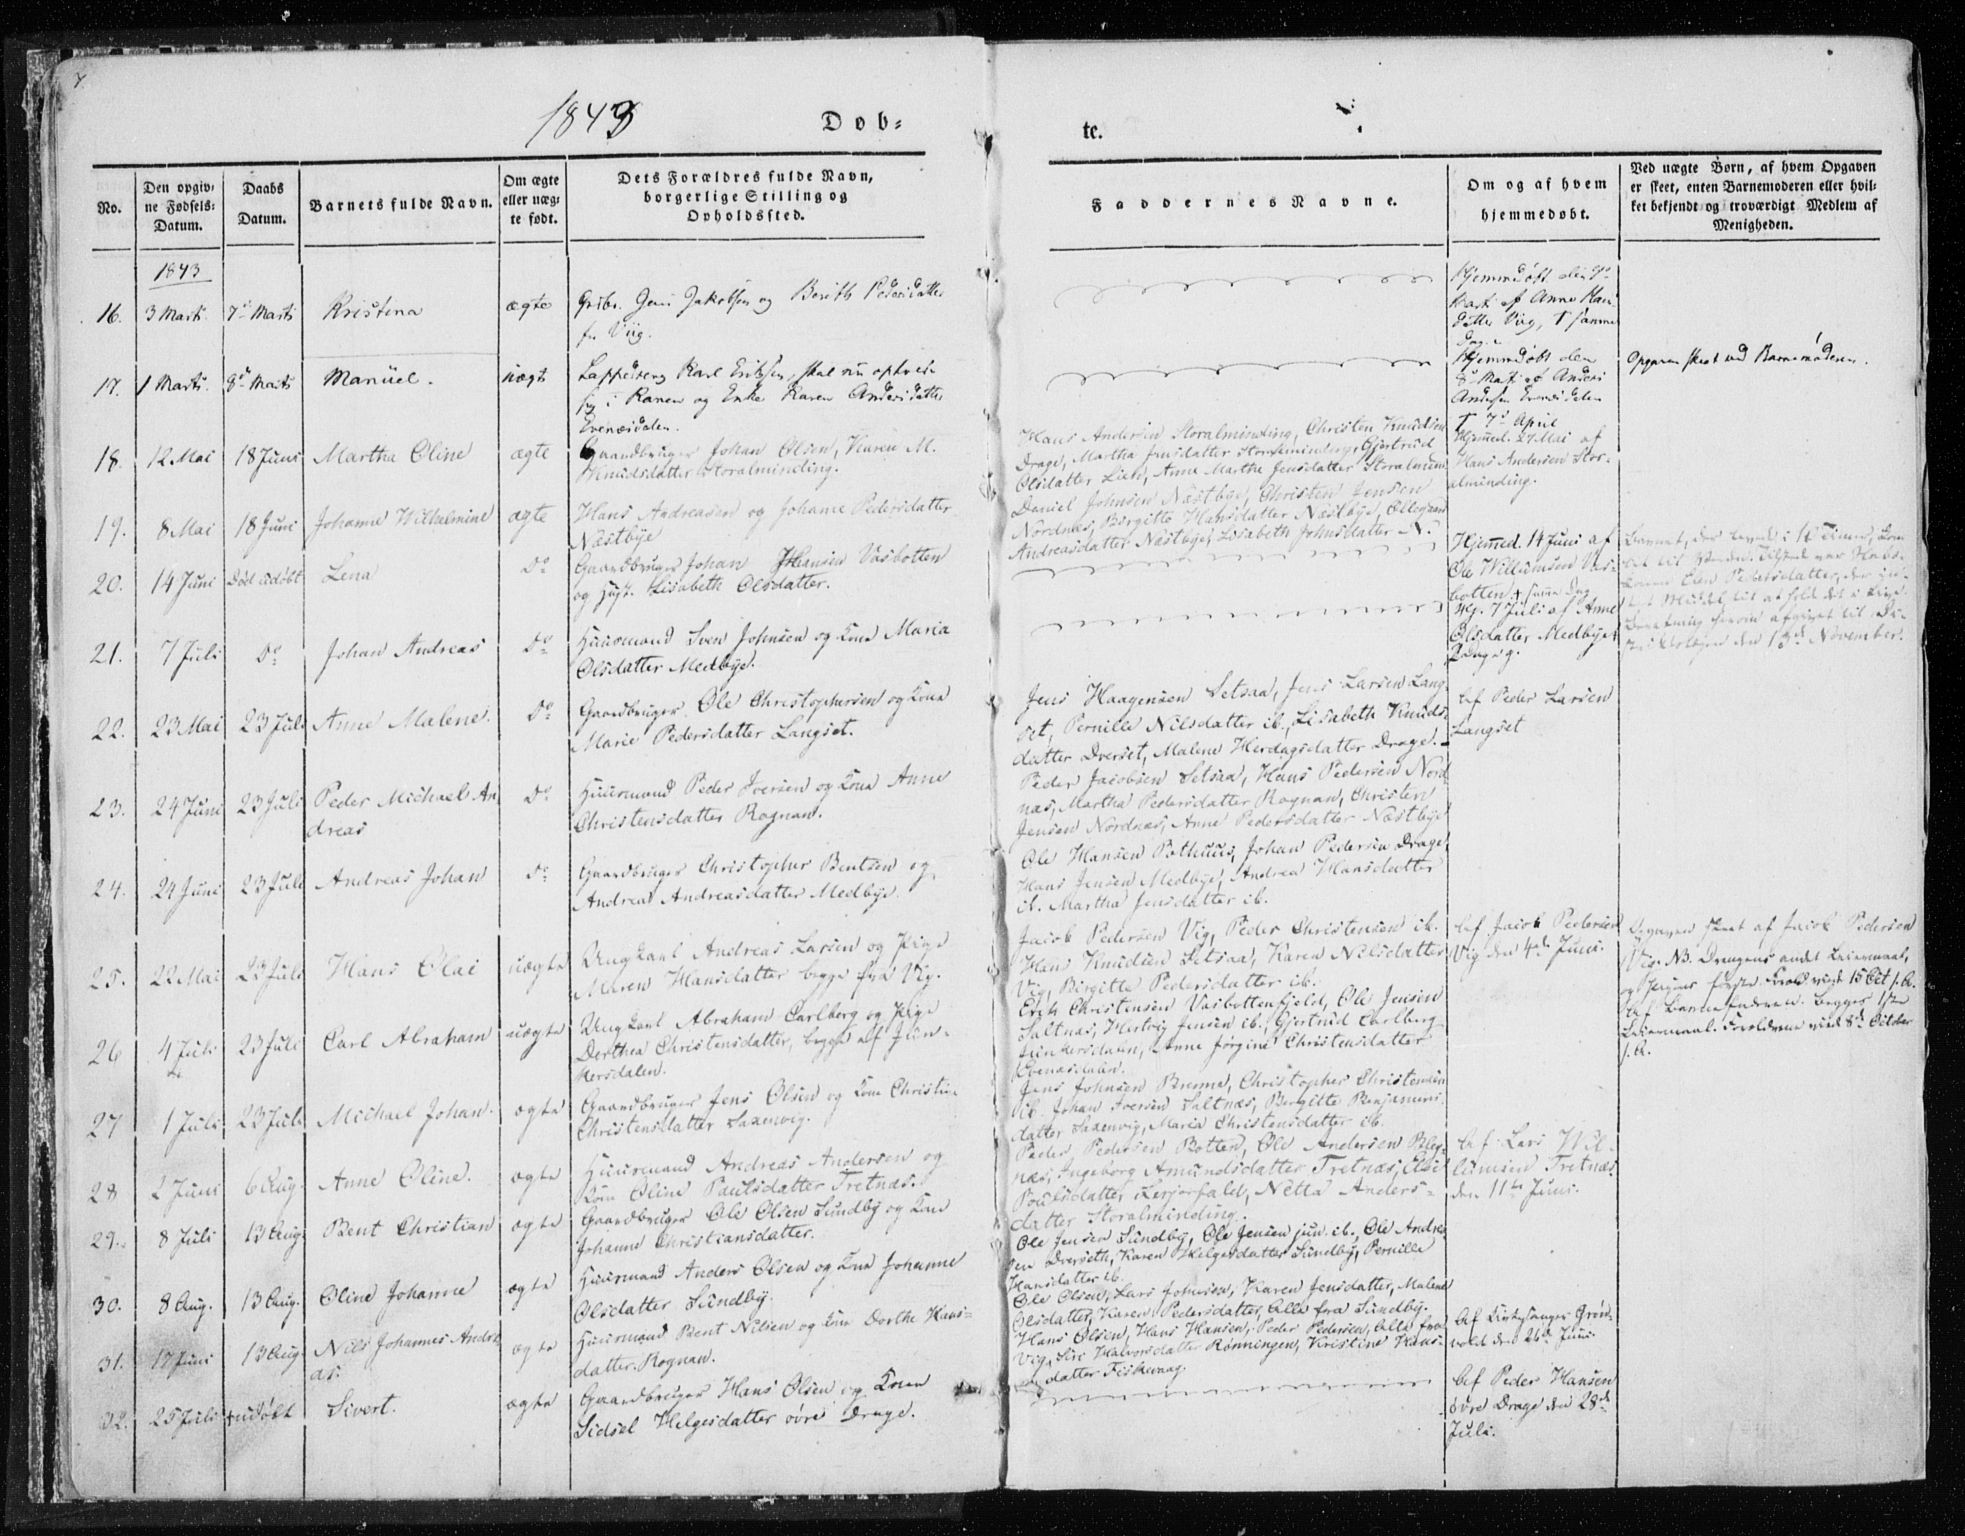 1843
Døb=
te.
No.
Den opgiv=
ne Fødsels=
Datum.
Daabs
Datum.
Barnets fulde Navn.
Om ægte
eller uæg=
te født.
Dets Forældres fulde Navn,
borgerlige Stilling og
Opholdssted.
Faddernes Navne.
Om og af hvem
hjemmedøbt.
Ved uægte Børn, af hvem Opgaven
er skeet, enten Barnemoderen eller hvil=
ket bekjendt og troværdigt Medlem af
Menigheden.
1843
16. 3 Marts 7de Marts Kristina ægte
Jens Jakobsen og Berith Pedersdatter
fr. Viig.
Hjemmedøbt den 7de
Marts af Anne
datter Viig, † samme
Dag.
17. 1 Marts. 8de Marts Manuel. uægte
Karl Eriksen, skal nu opholde
sig i Ranen og Enke Karen Andersdatter
Evenesdalen.
Hjemmedøbt den
8de Marts af Anders
Andersen Evenesdalen
† 7de April
Opgaven skeet ved Barnemoderen.
18. 12. Mai 18 Juni Martha Oline ægte
Gaardbruger Johan Olsen, Karen M.
Knudsdatter Storalminding.
Hans Andersen Storalminding, Christen Knudsen
Drage, Martha Jensdatter Storalminding, Gjertrud
Olsdatter Lien, Anne Martha Jensdatter Storalmin
Hjemmed. 27 Mai af
Hans Andersen Stor=
alminding.
19. 8 Mai 18 Juni Johanne Wilhelmine ægte
Hans Andreasen og Johanne Pedersdatter
Næstbye
Daniel Johnsen Næstbye, Christen Jensen
Nordnæs, Birgitte Hansdatter Næstbye, Ellegaard
Andreasdatter Næstbye, Lisabeth Johnsdatter N.
20. 14 Juni Død udøbt Lena Do
Gaardbruger Johan Hansen Vasbotten
og Hust. Lisabeth Olsdatter.
Hjemmed. 14 Juni af
Ole Willumsen Vas=
botten † samme Dag
Barnet, der levede i 12 Timer, kom
Ellen Pedersdatter,
den 13de November.
21. 7 Juli Do Johan Andreas Do
Huusmand Sven Johnsen og Kone Maria
Olsdatter Medbye.
Hj. 7 Juli af Anne
Olsdatter Medbye †
22. 23 Mai 23 Juli Anne Malene. Do
Gaardbruger Ole Christophersen og Kone
Marie Pedersdatter Langset.
Jens Haagensen Setsaa, Jens Larsen Lang=
set, Pernille Nilsdatter ib., Lisabeth Knuds=
datter Dverset, Malene Herdagsdatter Drage.
Af Peder Larsen
Langset
23. 24 Juni 23 Juli Peder Michael An
dreas Do
Huusmand Peder Iversen og Kone Anne
Christensdatter Rognan.
Peder Jacobsen Setsaa, Hans Pedersen Nord
næs, Martha Pedersdatter Rognan, Christen
Jensen Nordnæs, Anne Pedersdatter Næstbye
24. 24 Juni 23 Juli Andreas Johan Do
Gaardbruger Christopher Bentsen og
Andrea Andreasdatter Medbye.
Ole Hansen Pothuus, Johan Pedersen Drage,
Hans Jensen Medbye, Andrea Hansdatter
ib. Martha Jensdatter ib.
25. 22 Mai 23 Juli Hans Olai uægte
Ungkarl Andreas Larsen og Pige
Maren Hansdatter begge fra Vig.
Jacob Pedersen Vig, Peder Christensen ib.
Hans Knudsen Setsaa, Karen Nilsdatter
Vig, Birgitte Pedersdatter ib.
Af Jacob Pedersen
Vig den 4de Juni.
Opgaven skeet af Jacob Pedersen
Vig. NB. Drengens andet Leiermaal,
og Pigens første. 15 Oct.
26 4 Juli 23 Juli Carl Abraham uægte
Ungkarl Abraham Carlberg og Pige
Dorthea Christensdatter, begge af Jun=
kersdalen.
Erik Christensen Vasbottenfjeld, Ole Jensen
Saltnæs, Hertvig Jensen ib., Gjertrud Carlberg
Junkersdalen, Anne Jørgine Christensdatter
Evenæsdalen.
Af Barnefaderen. Begges 1ste
Leiermaal. Forældrene viede 8de October
27 1 Juli 23 Juli Michael Johan. ægte
Gaardbruger Jens Olsen og Kone Christin=
Christensdatter Saxenvig.
Jens Johnsen Brenne, Christopher Christensen
ib. Johan Iversen Saltnæs, Birgitte Benjamins
datter Saxenvig, Maria Christensdatter ib.
28 2 Juni 6 Aug. Anne Oline. ægte
Huusmand Andreas Andersen og
Kone Oline Paulsdatter Tretnæs.
Peder Pedersen Botten, Ole Andersen
næs, Ingeborg Amundsdatter Tretnæs, Else
Poulsdatter, Netta Anders=
datter Storalminding.
Af Lars Wil=
lumsen Tretnæs
den 11te Juni.
29. 8 Juli 13 Aug. Bent Christian ægte
Gaardbruger Ole Olsen Sundby og Kone
Johanne Christiansdatter.
Ole Jensen Sundby, Ole Jensen jun. ib., Ole Andrea
sen Dverseth, Karen Helgesdatter Sundby, Pernille
Hansdatter ib.
30. 8 Aug. 13 Aug. Oline Johanne ægte
Huusmand Anders Olsen og Kone Johanne
Olsdatter Sundby.
Ole Olsen, Lars Johnsen, Karen Jensdatter, Malene
Olsdatter, Karen Pedersdatter, Alle fra Sundby.
31. 17 Juni 13 Aug. Nils Johannes Andre
as. ægte
Huusmand Bent Nilsen og Kone Dorthe Hans=
datter Rognan.
Hans Olsen, Hans Hansen, Peder Pedersen, Alle fra
Vig, Siri Halvorsdatter Rønningen, Kristine Hans=
datter Fiskevaag.
Af Kirkesanger Grøn=
vold den 26de Juni.
32. 25 Juli † udøbt Sivert. ægte
Gaardbruger Hans Olsen og Kone
Sidsel Helgesdatter øvre Drage.
Af Peder Hansen
øvre Drage den 28de
Juli.